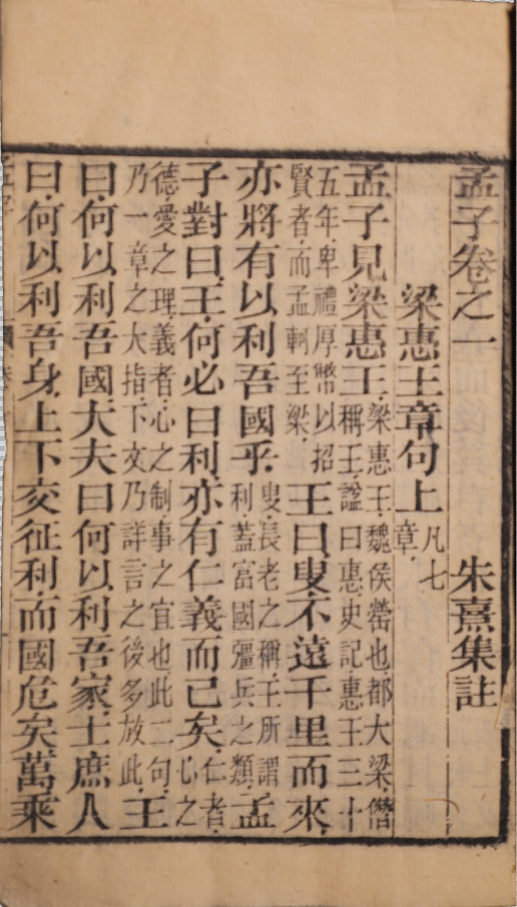 孟子卷之一　朱熹集註
梁惠王章句上 凡七章
孟子見梁惠王 梁惠王魏侯罃也都大梁僭稱王諡曰惠史記惠王三十
五年卑禮厚幣以招賢者而孟軻至梁 王曰叟不遠千里而來
亦將有以利吾國乎 叟長老之稱王所謂利蓋富國彊兵之類 孟
子對曰王何必曰利亦有仁義而已矣 仁者心之
德愛之理義者心之制事之宜也此二句乃一章之大指下文乃詳言之後多放此 王
曰何以利吾國大夫曰何以利吾家士庶人
曰何以利吾身上下交征利而國危矣萬乘